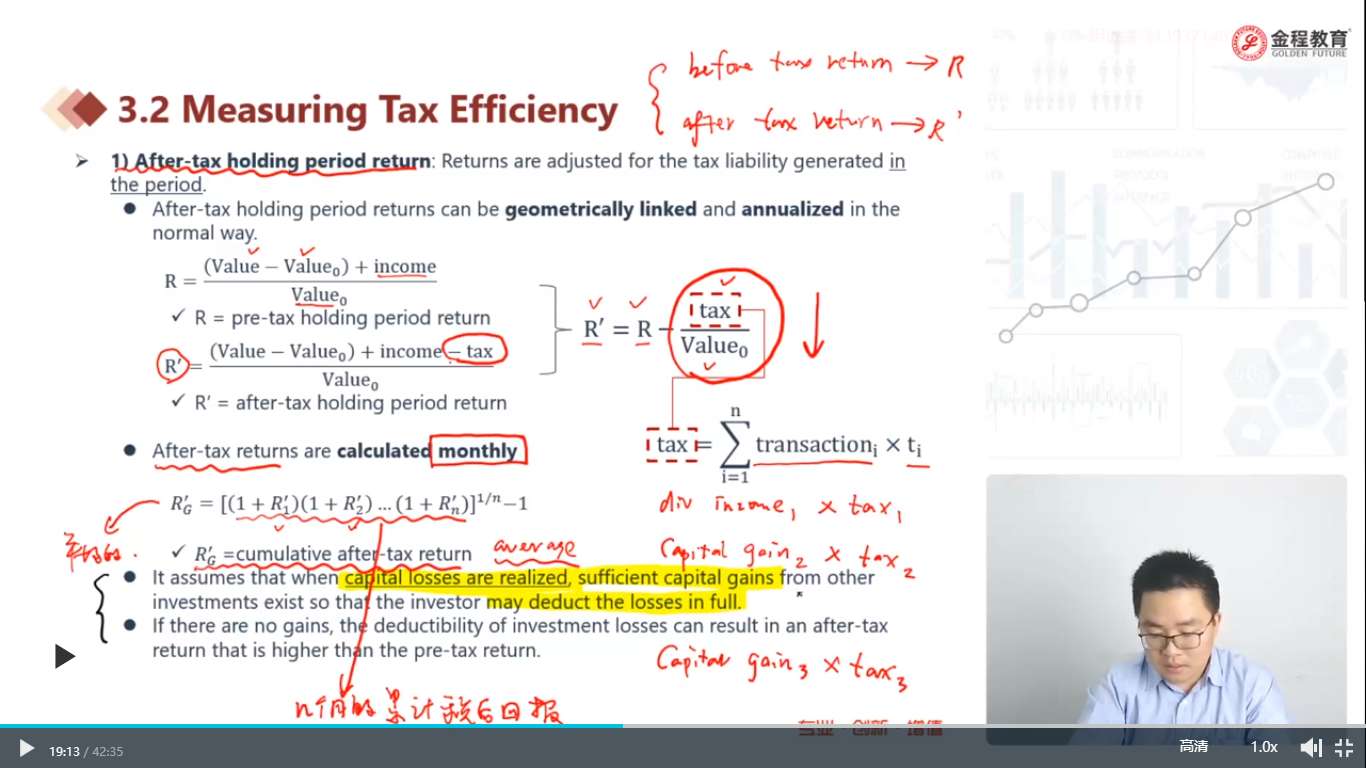 金程教育
GOLDEN FUTURE
before tax return → R
after tax return → R'
3.2 Measuring Tax Efficiency
➢ 1) After-tax holding period return: Returns are adjusted for the tax liability generated in
the period.
● After-tax holding period returns can be geometrically linked and annualized in the
normal way.
R = (Value − Value₀) + income / Value₀
✓ R = pre-tax holding period return
R′ = (Value − Value₀) + income − tax / Value₀
✓ R′ = after-tax holding period return
R′ = R − tax / Value₀
● After-tax returns are calculated monthly
tax = ∑ⁿᵢ₌₁ transactionᵢ × tᵢ
R′_G = [(1 + R′₁)(1 + R′₂) … (1 + R′ₙ)]^1/n − 1
div income₁ × tax₁
✓ R′_G =cumulative after-tax return
average
Capital gain₂ × tax₂
● It assumes that when capital losses are realized, sufficient capital gains from other
investments exist so that the investor may deduct the losses in full.
● If there are no gains, the deductibility of investment losses can result in an after-tax
return that is higher than the pre-tax return.
Capital gain₃ × tax₃
n个月的累计税后回报
专业·创新·增值
19:13 / 42:35
高清
1.0x